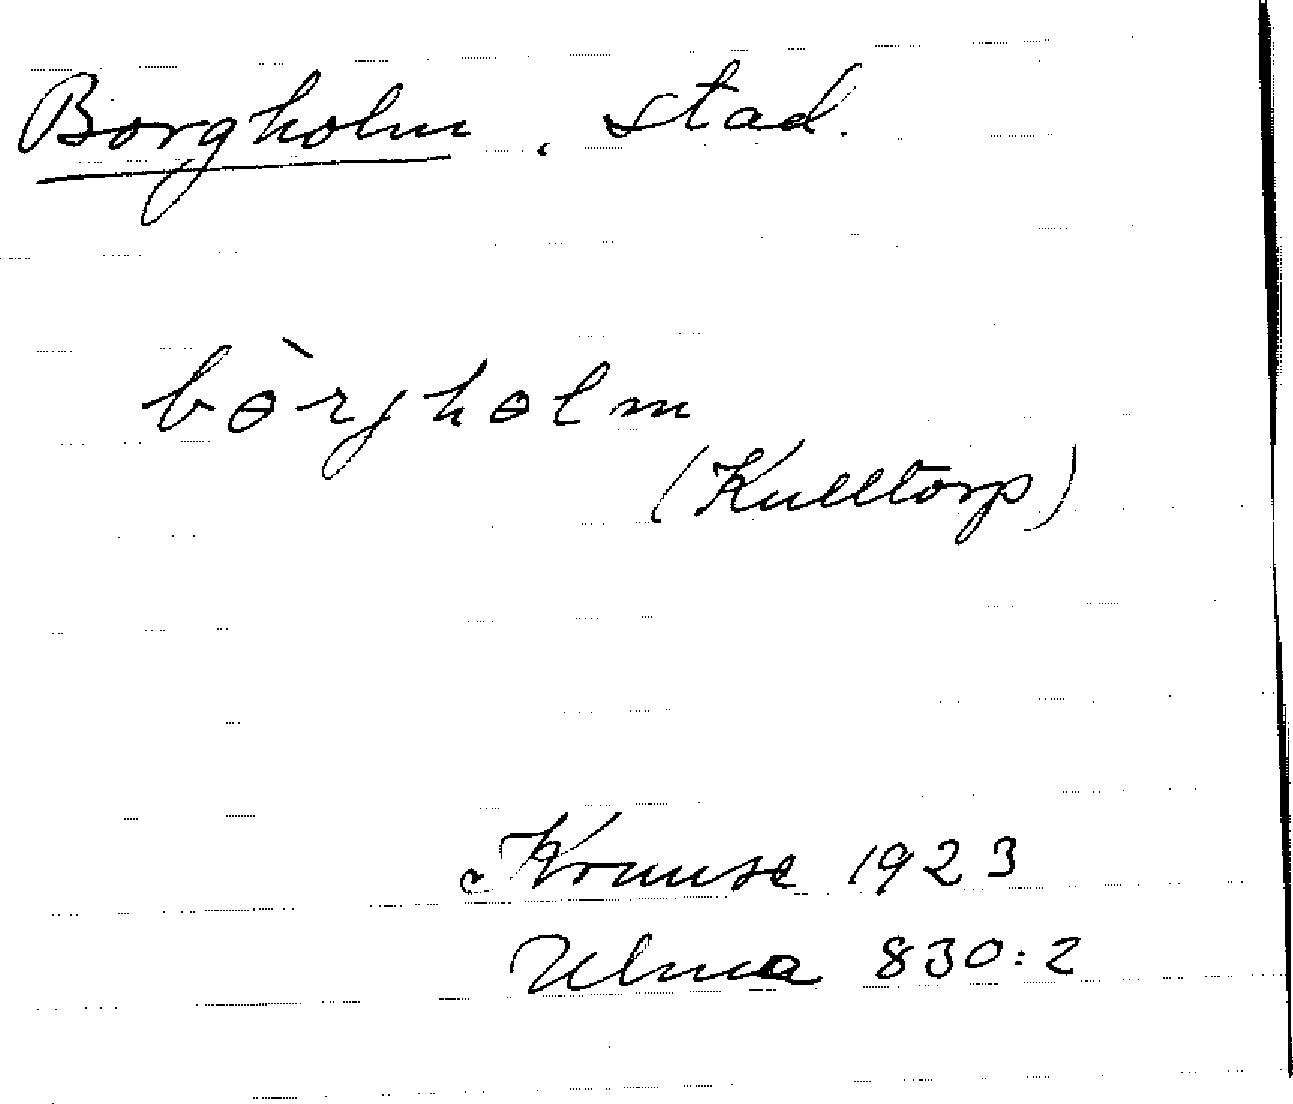 Borgholm, stad.
bɵ̀rjhɵlm
(Kulltorp)
Krause 1923
Ulma 830:2